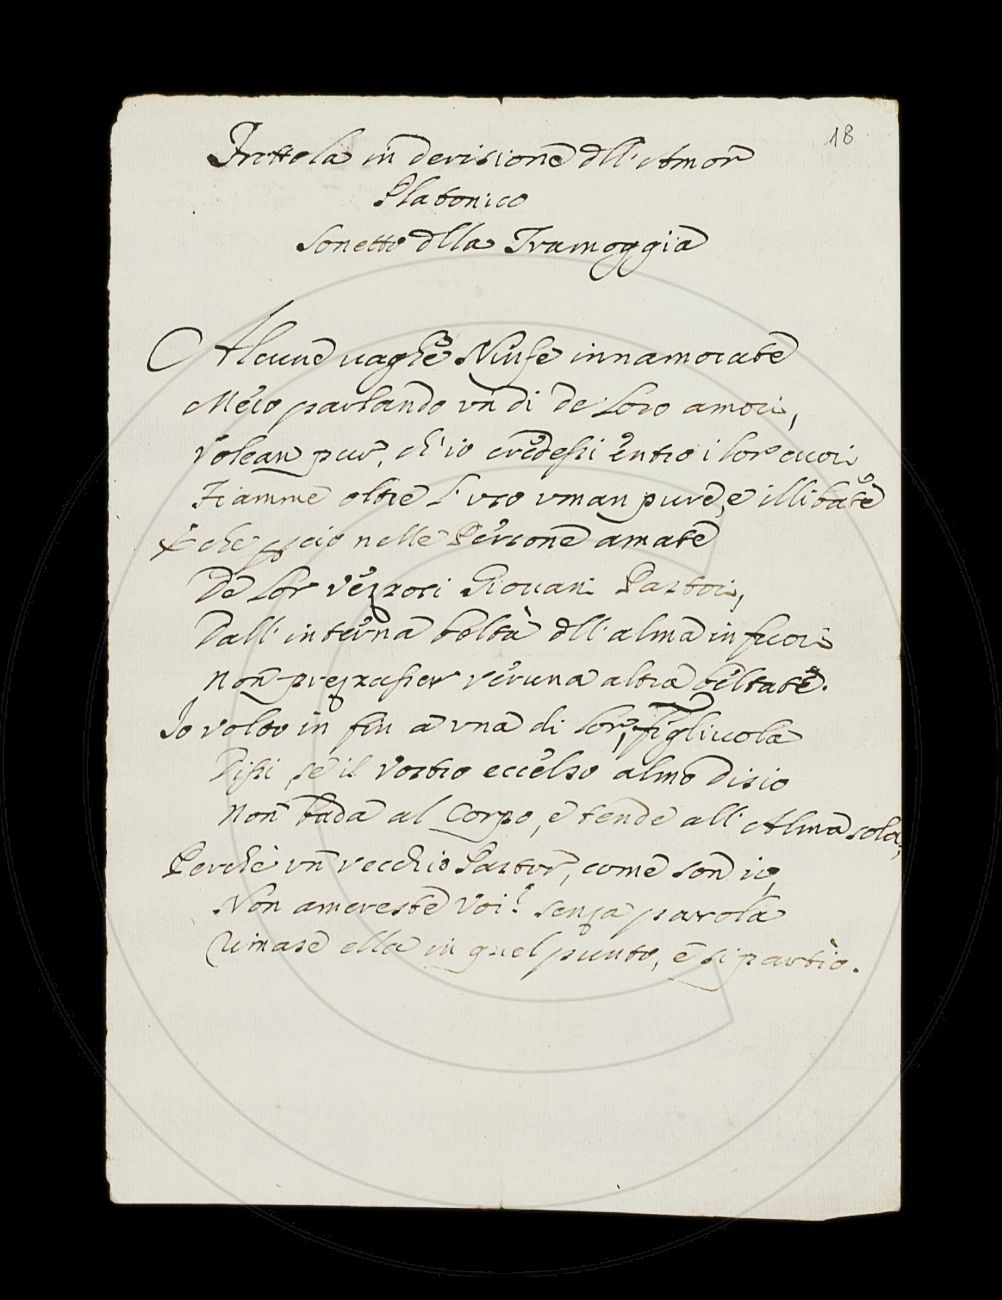 18
Frottola in derisione dll'Amor
Platonico
Sonetto dlla Tramoggia
Alcune uaghe Ninfe innamorate
Meco parlando vn di de loro amori,
Volean pur, ch'io credessi entro i lor cuori
Fiamme oltre l'vso vman pure, e illibate
E che nelle Persone amate
De lor vezzosi Giouani Pastori,
Dall'interna beltà dll'alma in fuori
Non prezzasser veruna altra beltate.
Io volto in fin a vna di lor, figliuola
Dissi se il vostro eccelso almo disio
Non bada al Corpo, e tende all'Alma sola;
Perchè vn vecchio Pastor, come son io,
Non amereste Voi? senza parola
Rimase ella in quel punto, e si partìo.